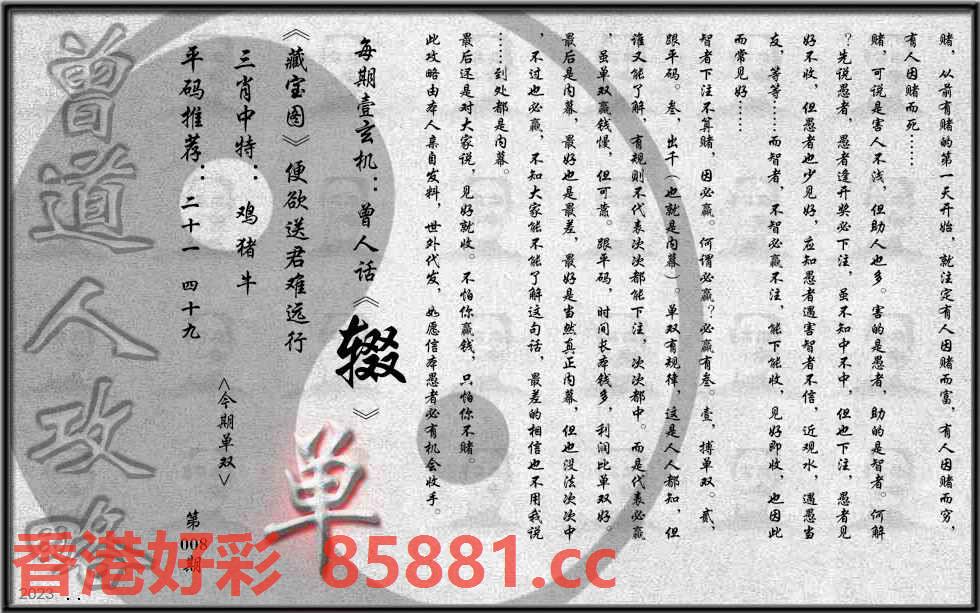 赌，从前有赌的第一天开始，就注定有人因赌而富，有人因赌而穷，
有人因赌而死……
赌，可说是害人不浅，但助人也多。害的是愚者，助的是智者。何解
？先说愚者，愚者逢开奖必下注，虽不知中不中，但也下注，愚者见
好不收，但愚者也少见好，应知愚者遇害智者不信，近观水，遇愚当
友，等等……而智者，不智必赢不注，能下能收，见好即收，也因此
而常见好……
智者下注不算赌，因必赢。何谓必赢？必赢有叁。壹，搏单双。贰，
跟平码。叁，出千（也就是内幕）。单双有规律，这是人人都知，但
谁又能了解，有规则不代表次次都能下注，次次都中。而是代表必赢
，虽单双赢钱慢，但可蓄。跟平码，时间长本钱多，利润比单双好。
最后是内幕，最好也是最差，最好是当然真正内幕，但也没法次次中
，不过也必赢，不知大家能不能了解这句话，最差的相信也不用我说
……到处都是内幕。
最后还是对大家说，见好就收。不怕你赢钱，只怕你不赌。
此攻略由本人亲自发料，世外代发，如愿信本愚者必有机会收手。
每期壹玄机：曾人话《辍》
《藏宝图》便欲送君难远行
三肖中特：鸡猪牛
平码推荐：二十一 四十九
<今期单双>
单
第008期
曾道人攻略
香港好彩 85881.cc
2023